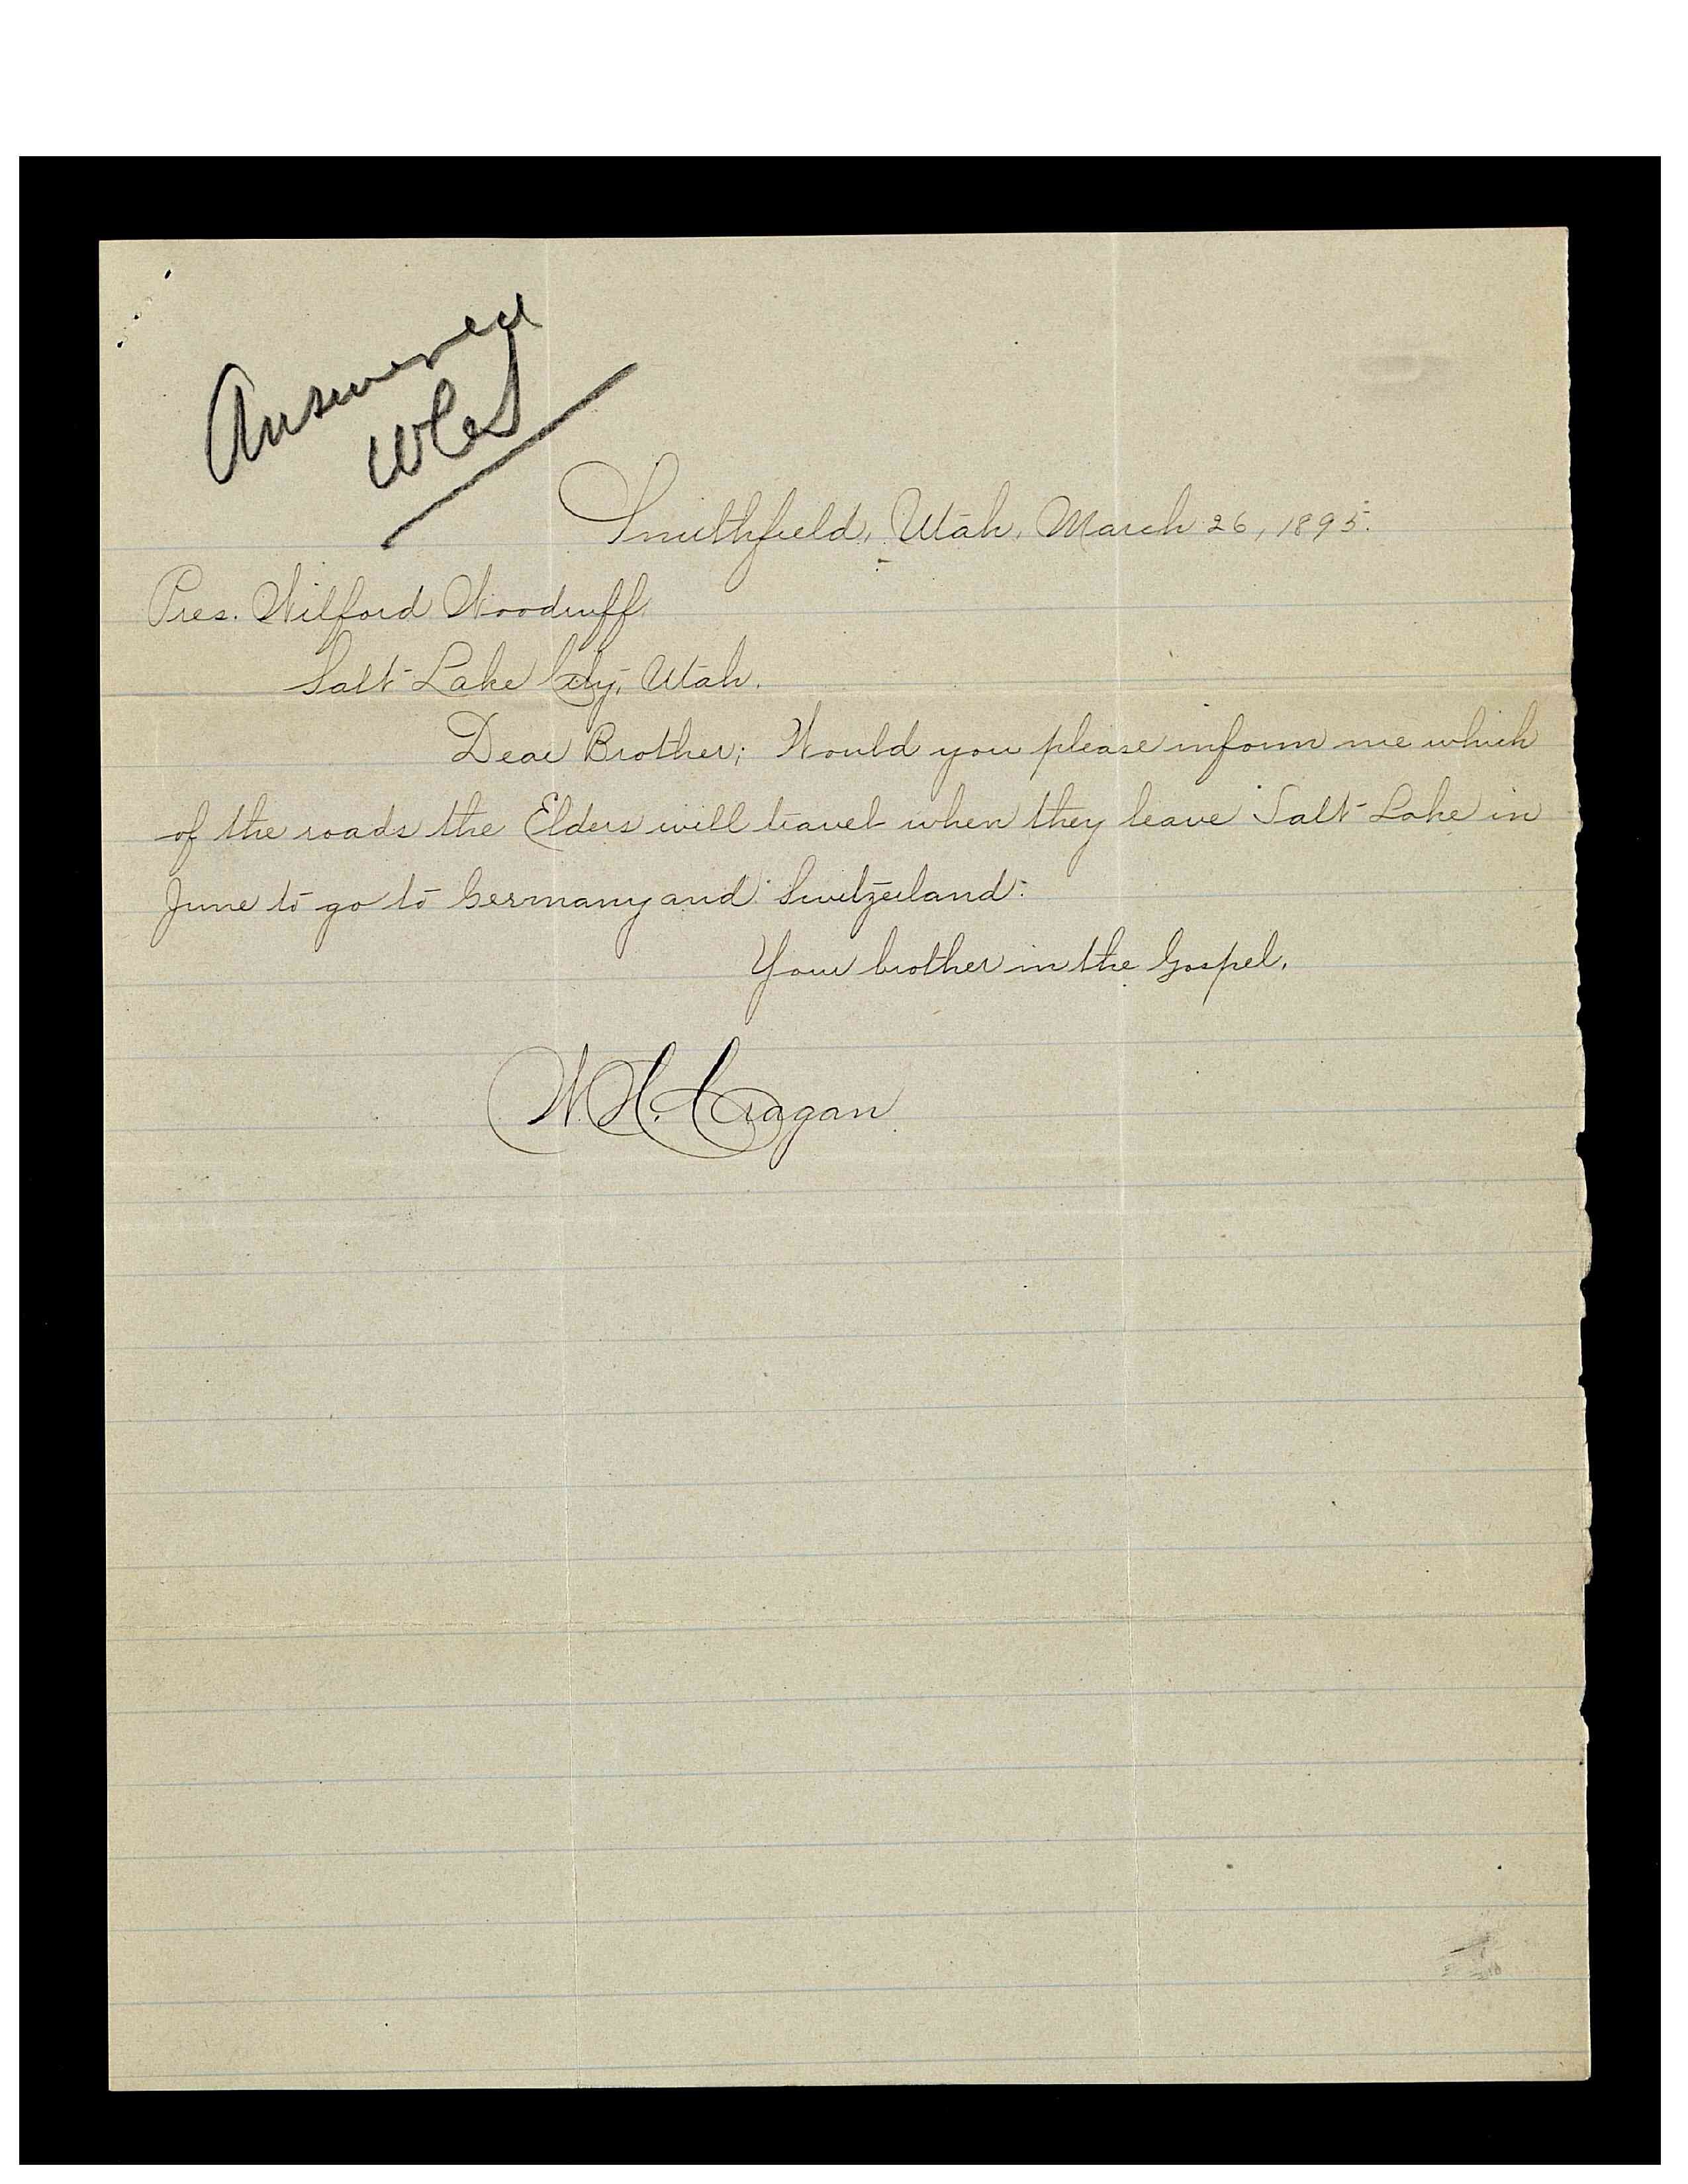 Answered
WCS
Smithfield, Utah, March 26, 1895.
Pres. Wilford Woodruff,
Salt Lake City, Utah.
Dear Brother; Would you please inform me which
of the roads the Elders will travel when they leave Salt Lake in
June to go to Germany and Switzerland.
Your brother in the Gospel,
W. H. Cragan